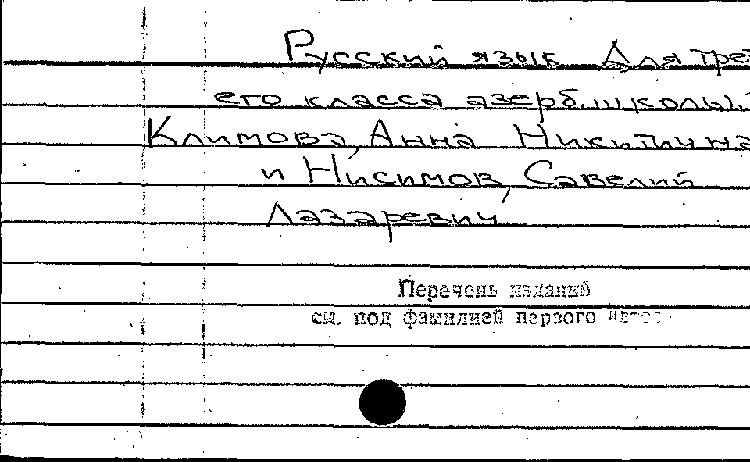 Русский язык Для трет
его класса азербшколы
Климова, Анна Никитична
и Нисимов, Савелий
Лазаревич
Перечень изданий
см. под фамилией первого автора